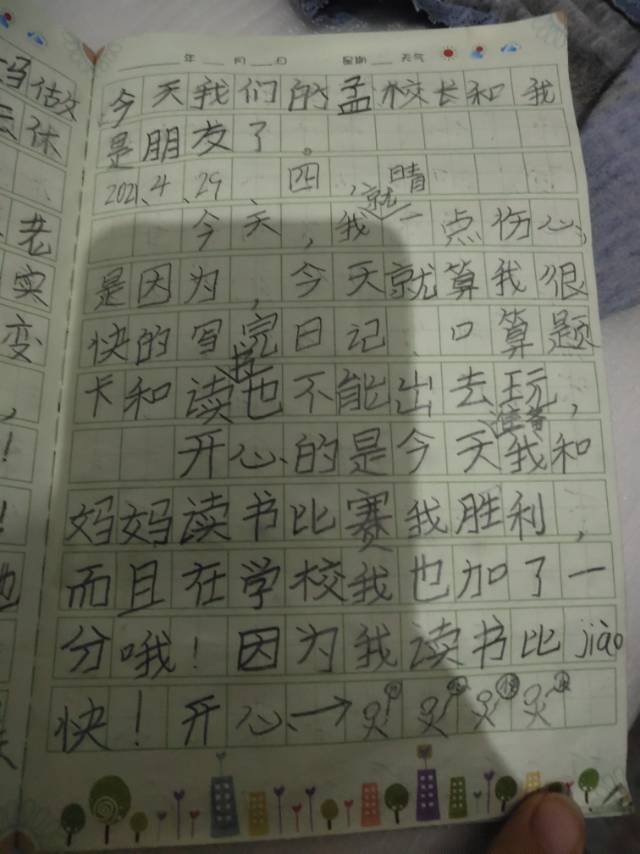 年 月 日 星期 天气
今天我们的孟校长和我
是朋友了。
2021、4、29、四,晴
今天,我就一点伤心,
是因为,今天就算我很
快的写完日记、口算题
卡和读书也不能出去玩,
开心的是今天我和
妈妈读书比赛我胜利,
而且在学校我也加了一
分哦!因为我读书比jiào
快!开心→
妈做
去休
老
实
变
,
!
!